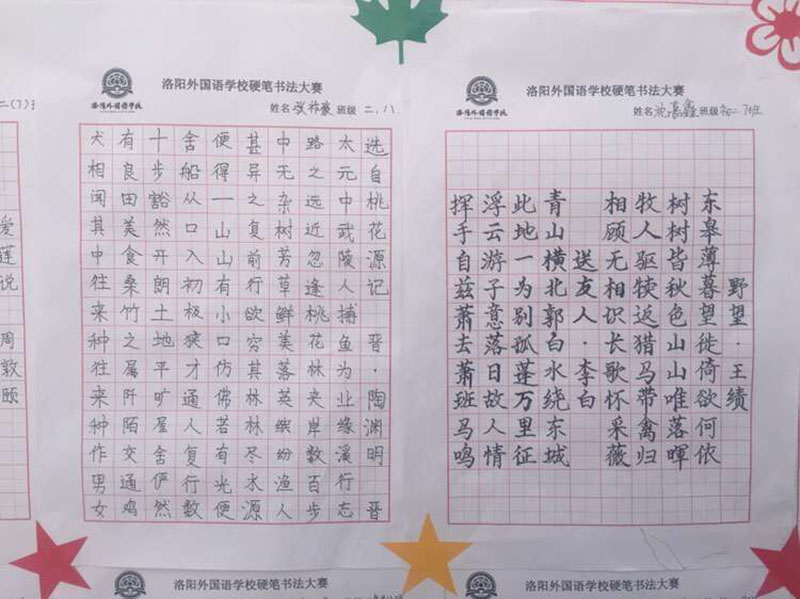 洛阳外国语学校硬笔书法大赛
洛阳外国语学校
姓名 班级 二.八
选自桃花源记 晋·陶渊明 晋
太元中武陵人捕鱼为业缘溪行忘
路之远近忽逢桃花林夹岸数百步
中无杂树芳草鲜美落英缤纷渔人
甚异之复前行欲穷其林林尽水源
便得一山山有小口仿佛若有光便
舍船从口入初极狭才通人复行数
十步豁然开朗土地平旷屋舍俨然
有良田美食桑竹之属阡陌交通鸡
犬相闻其中往来种往来种作男女
洛阳外国语学校硬笔书法大赛
洛阳外国语学校
姓名 班级 初二7班
野望·王绩
东皋薄暮望徙倚欲何依
树树皆秋色山山唯落晖
牧人驱犊返猎马带禽归
相顾无相识长歌怀采薇
送友人·李白
青山横北郭白水绕东城
此地一为别孤蓬万里征
浮云游子意落日故人情
挥手自兹萧去萧班马鸣
二(7)
爱莲说 周敦颐
洛阳外国语学校硬笔书法大赛
洛阳外国语学校硬笔书法大赛